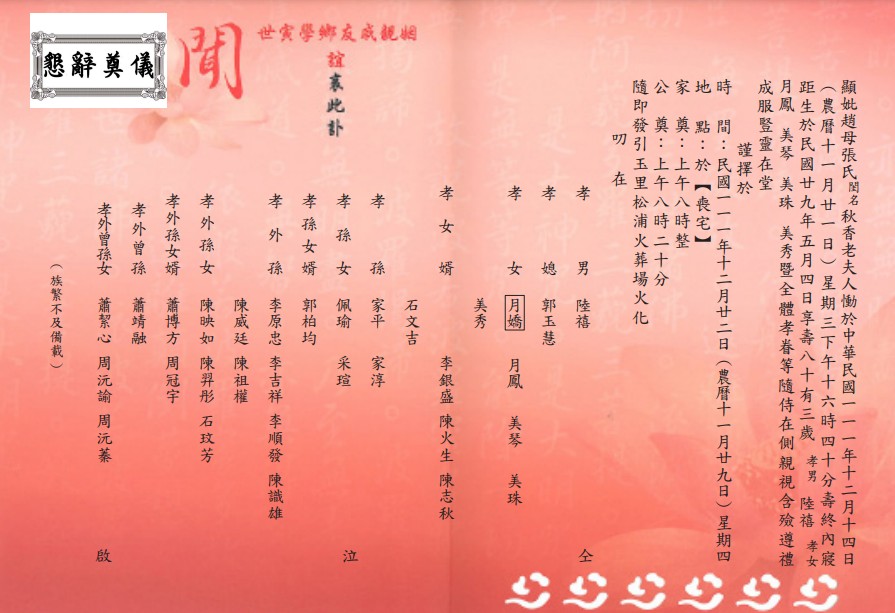 顯妣趙母張氏閨名秋香老夫人慟於中華民國一一一年十二月十四日
（農曆十一月廿一日）星期三下午十六時四十分壽終內寢
距生於民國廿九年五月四日享壽八十有三歲 孝男 陸禧 孝女
月鳳 美琴 美珠 美秀暨全體孝眷等隨侍在側親視含殮遵禮
成服豎靈在堂
謹擇於
時 間：民國一一一年十二月廿二日（農曆十一月廿九日）星期四
地 點：於【喪宅】
家 奠：上午八時整
公 奠：上午八時二十分
隨即發引玉里松浦火葬場火化
叨 在
孝 男 陸禧 仝
孝 媳 郭玉慧
孝 女 月嬌 月鳳 美琴 美珠
美秀
孝 女 婿 李銀盛 陳火生 陳志秋
石文吉
孝 孫 家平 家淳
孝 孫 女 佩瑜 采瑄 泣
孝 孫 女 婿 郭柏均
孝 外 孫 李原忠 李吉祥 李順發 陳識雄
陳威廷 陳祖權
孝 外 孫 女 陳映如 陳羿彤 石玟芳
孝外孫女婿 蕭博方 周冠宇
孝 外 曾 孫 蕭靖融
孝外曾孫女 蕭絜心 周沅諭 周沅蓁 啟
（族繁不及備載）
姻親戚友鄉學寅世
誼
哀此訃
聞
懇辭奠儀